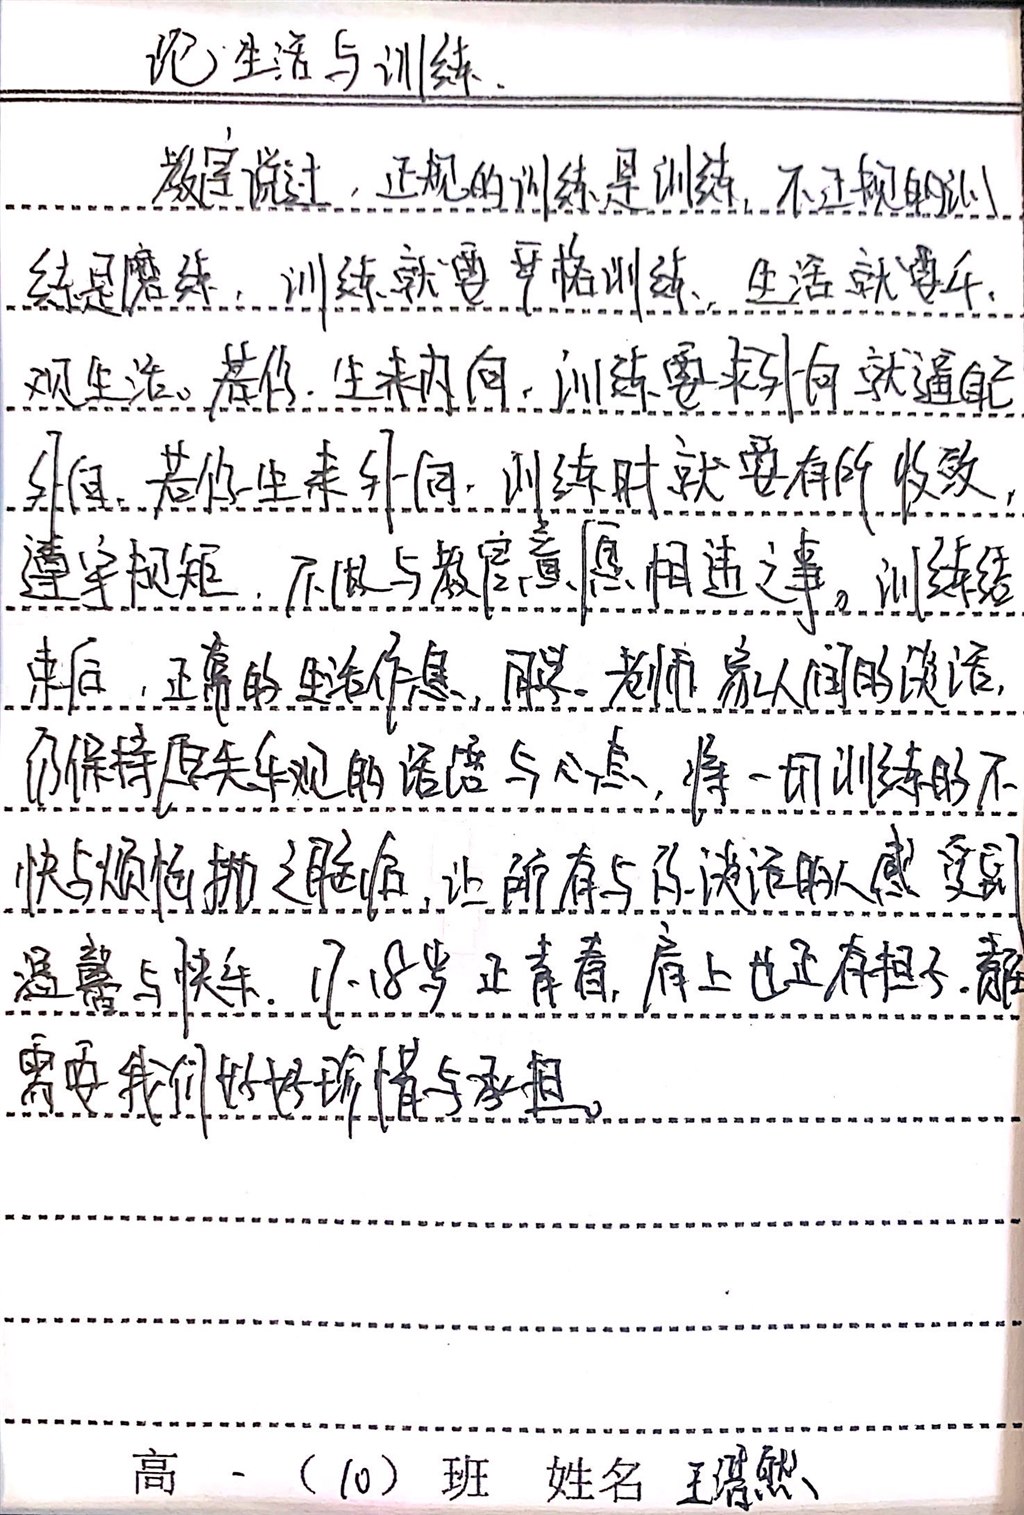 论生活与训练.
教官说过，正规的训练是训练，不正规的训
练是磨练，训练就要严格训练，生活就要乐
观生活。若你生来内向，训练要求外向就逼自己
外向，若你生来外向，训练时就要有所收敛，
遵守规矩，不做与教官意愿相违之事。训练结
束后，正常的生活作息，同学、老师家人间的谈话，
仍保持原先乐观的话语与心态，将一切训练的不
快与烦恼抛之脑后，让所有与你谈话的人感受到
温馨与快乐，17、18岁正青春，肩上也正有担子，
需要我们好好珍惜与承担。
高一（10）班 姓名 王